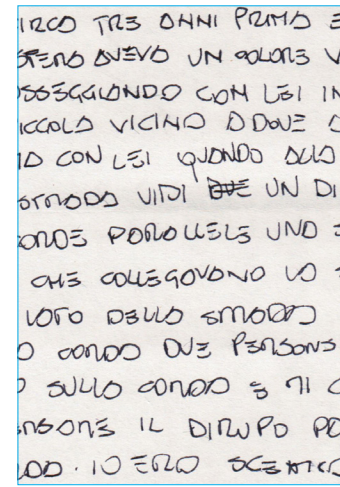 IRCA TRE ANNI PRIMA E
STERO AVEVO UN V
ASSEGGIANDO CON LEI IN
ICCOLA VICINO A DOVE A
IA CON LEI QUANDO ALLA
STRADA VIDI DUE UN DI
CORDE PARALLELE UNA
CHE COLLEGAVANO LA
LATO DELLA STRADA
A CORDA DUE PERSONE
SULLA CORDA E MI C
ERSONE IL DIRUPO PO
ADA. IO ERO SCETTICO